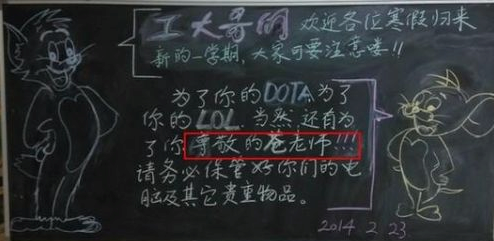 工大哥哥 欢迎各位寒假归来
新的一学期，大家可要注意喽！！
为了你的DOTA，为了
你的LOL，当然，还有为
了你尊敬的苍老师！！！
请务必保管好你们的电
脑及其它贵重物品。
2014 2 23